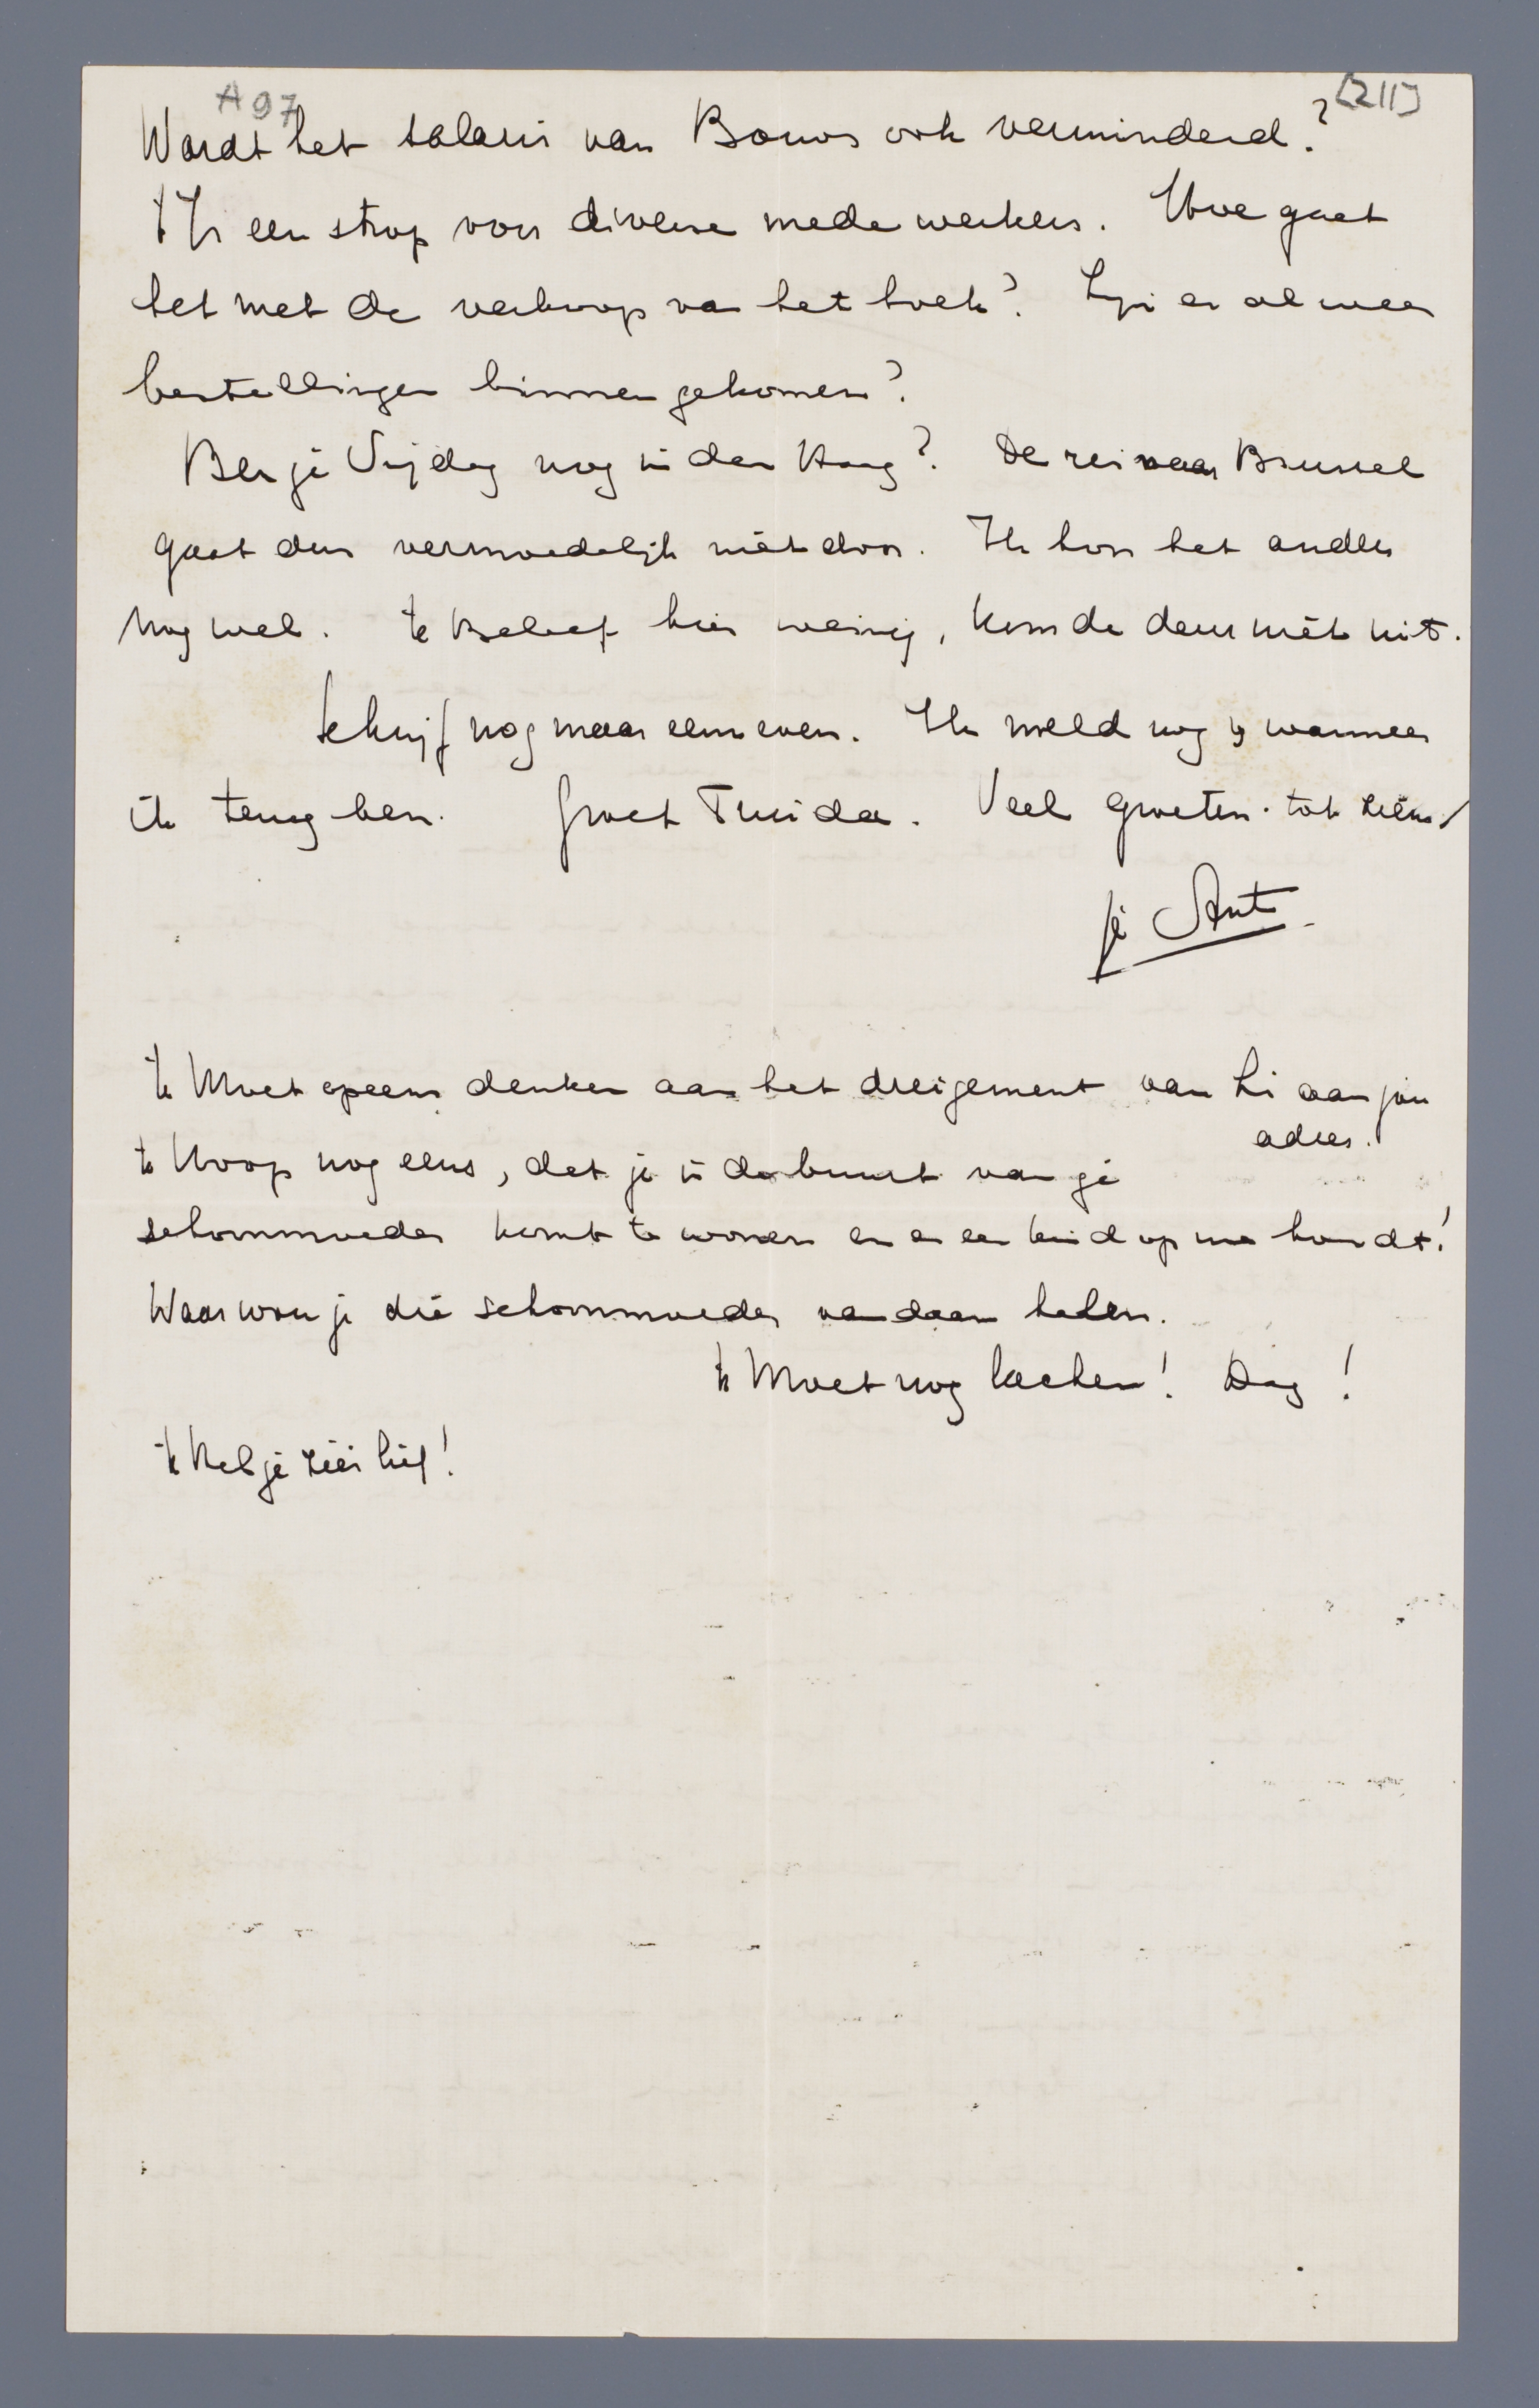 A 97 [211]
Wordt het salaris van Bouws ook verminderd?
't Is een strop voor diverse medewerkers. Hoe gaat
het met de verkoop van het boek? Zijn er al weer
bestellingen binnen gekomen?
Ben je Vrijdag nog in den Haag? De reis naar Brussel
gaat dus vermoedelijk niet door. Ik hoor het anders
nog wel. Ik Beleef hier weinig, kom de deur niet uit.
Schrijf nog maar eens even. Ik meld nog wanneer
ik terug ben. Groet Truida. Veel groeten. tot ziens
je Ant
Ik Moet opeens denken aan het dreigement van Li aan jou
adres.
Ik Hoop nog eens, dat je in de buurt van je
schoonmoeder komt te wonen en er een kind op na houdt!
Waar wou je die schoonmoeder vandaan halen.
Ik Moet nog lachen! Dag!
Ik Heb je zéér lief!